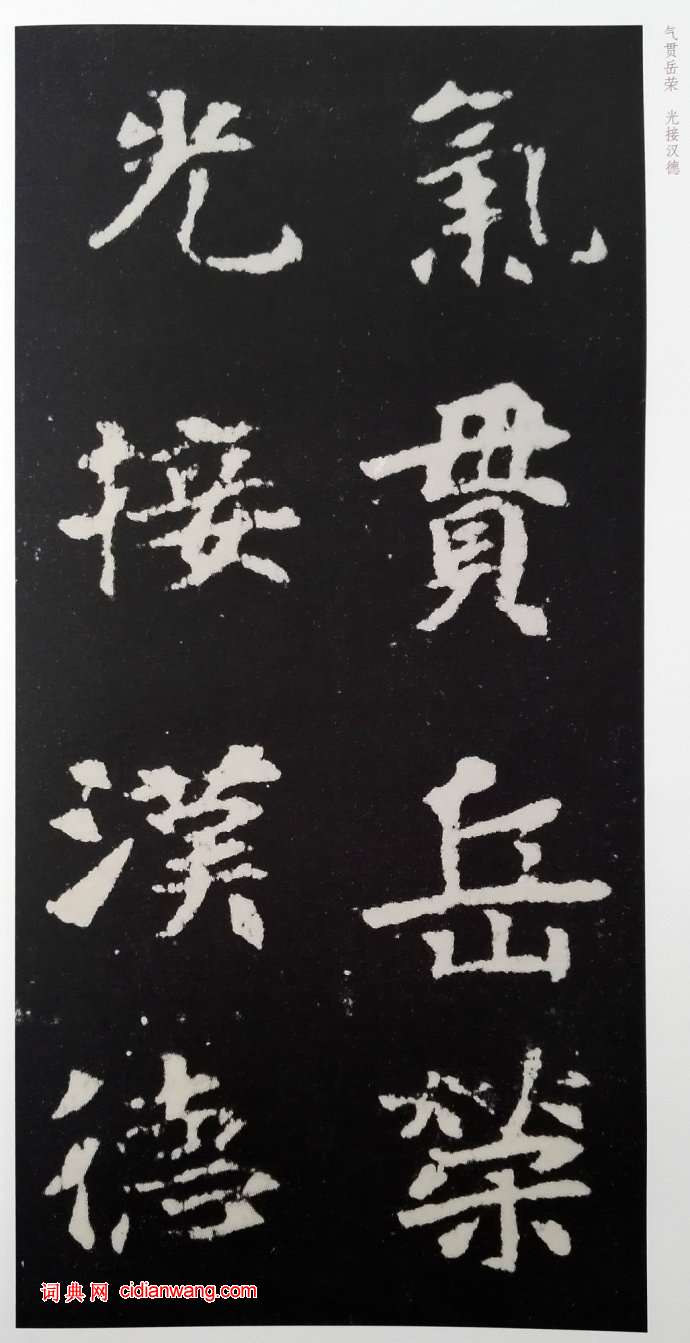 气贯岳荣 光接汉德
氣貫岳榮
光接漢德
词典网 cidianwang.com